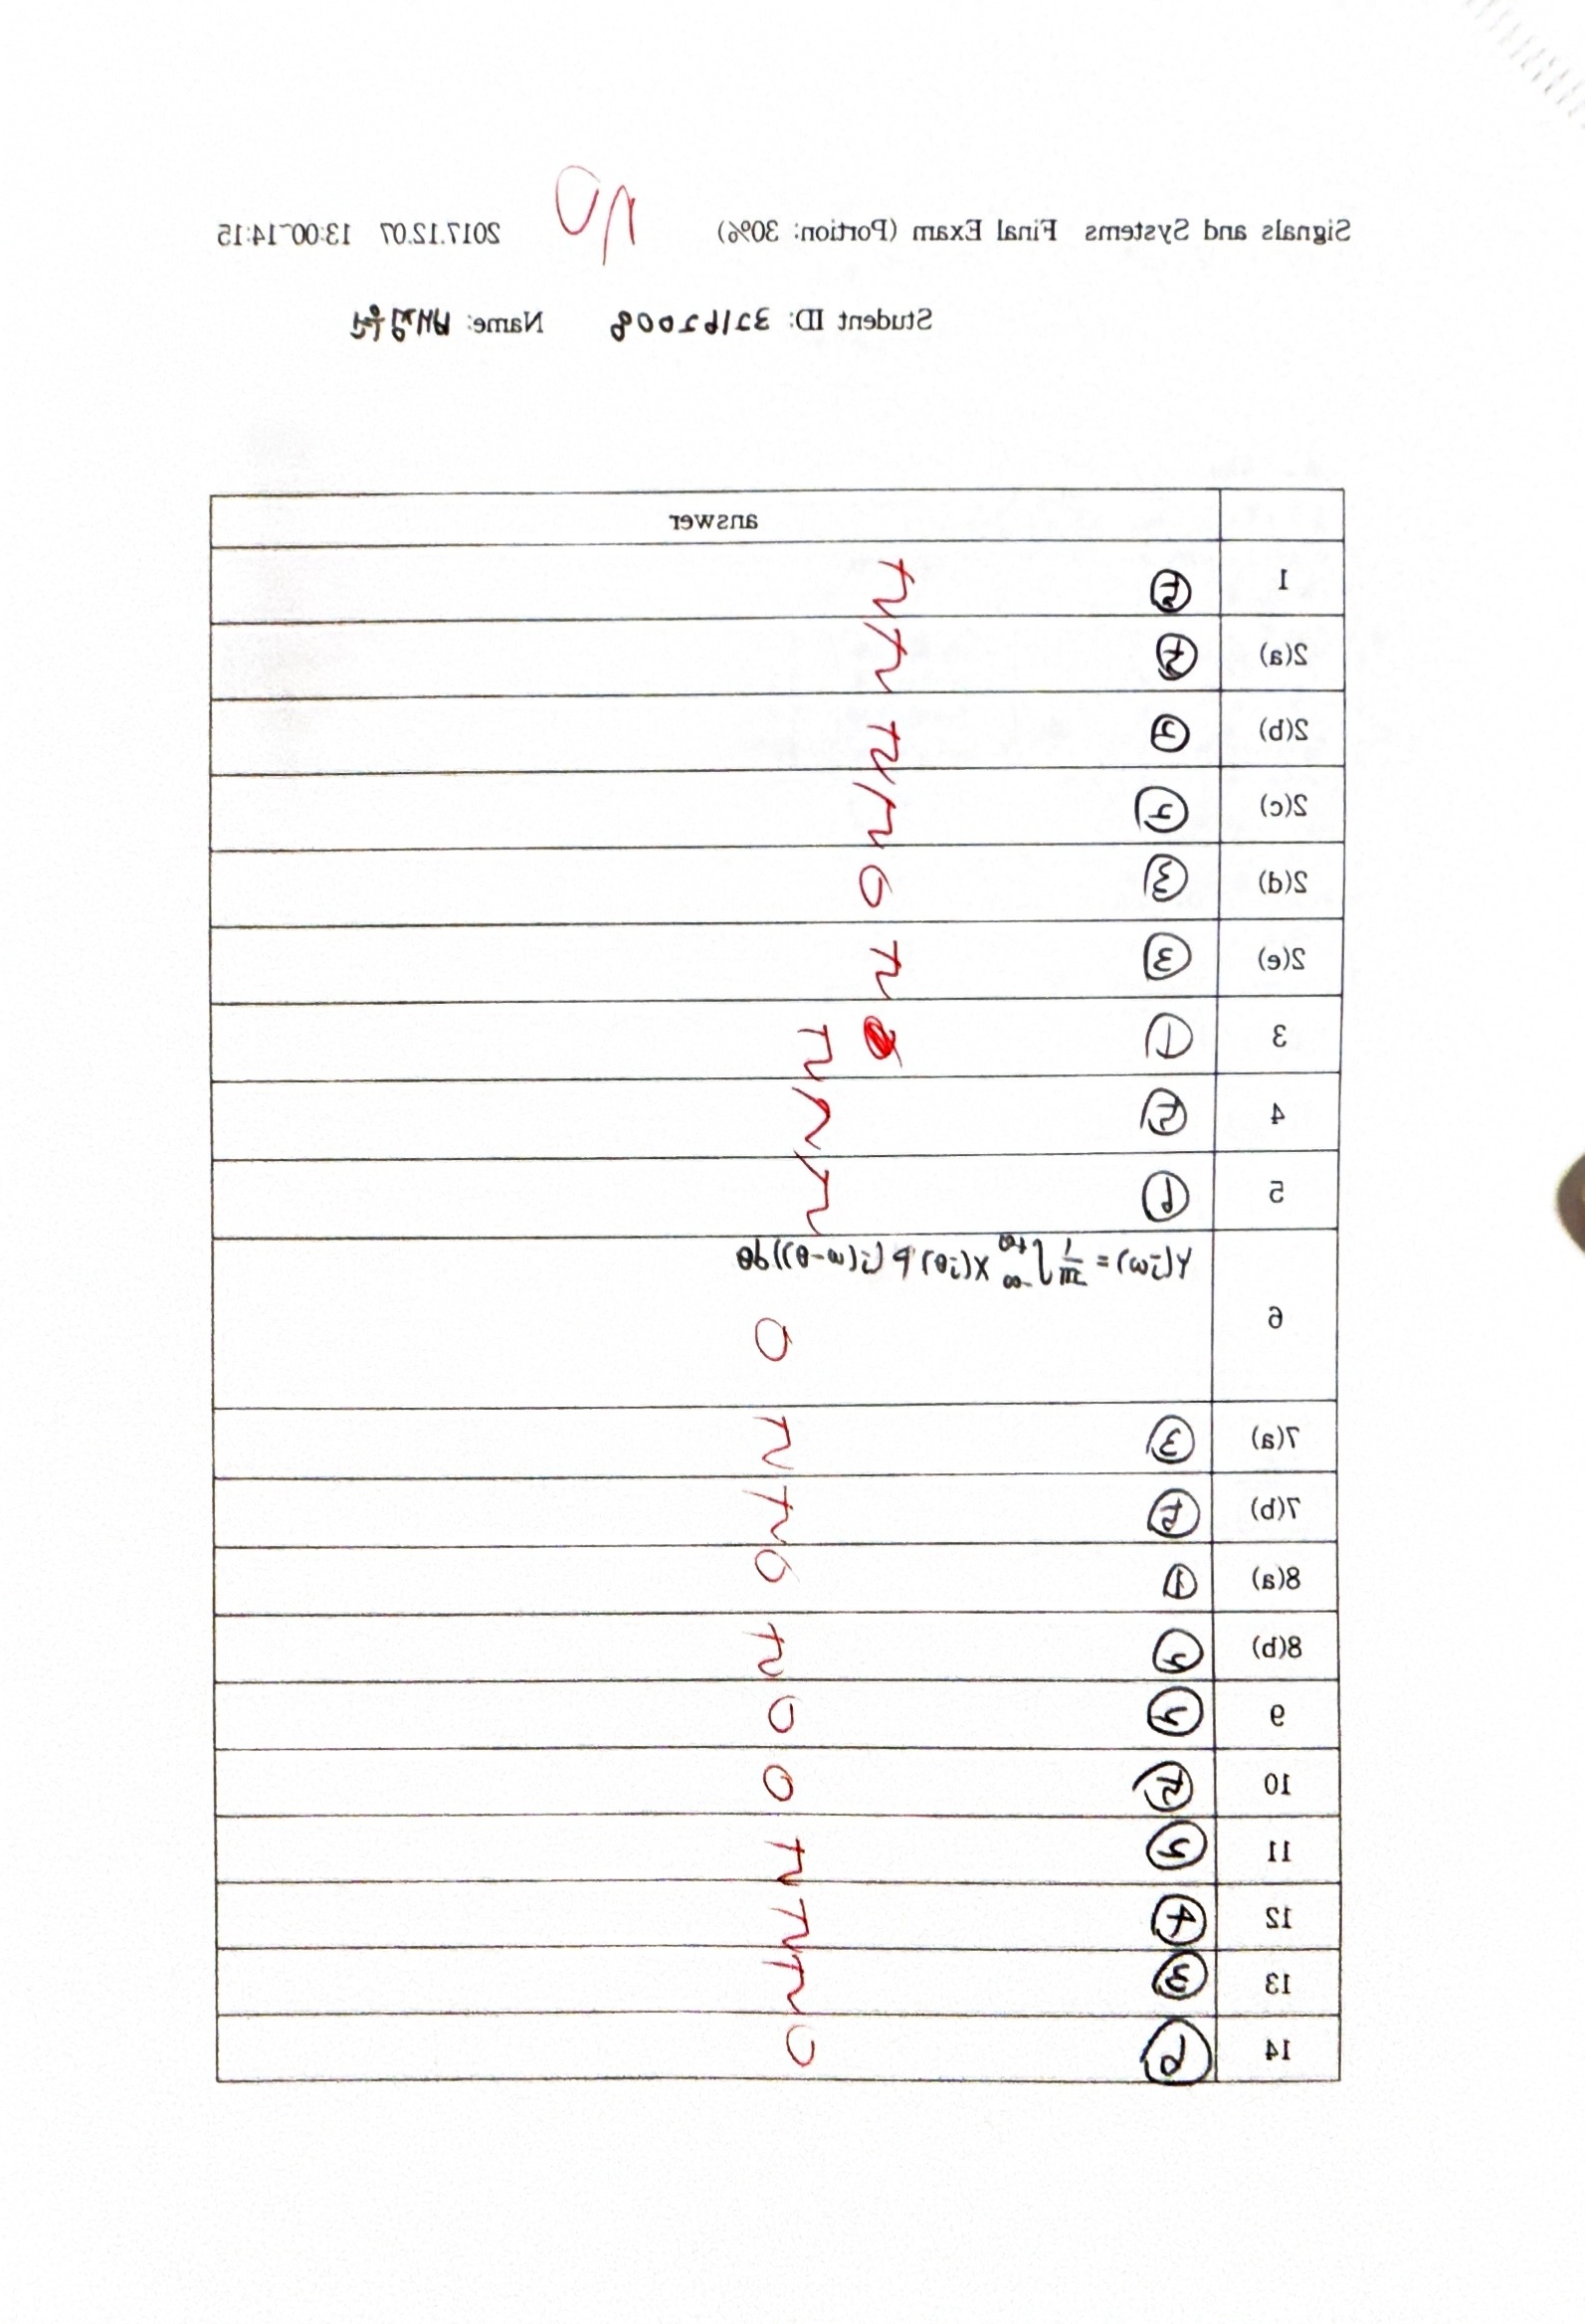 Signals and Systems Final Exam (Portion: 30%) 2017.12.07 13:00~14:15
Student ID: 32162008 Name:
answer
1 ⑤
2(a) ⑤
2(b)
2(c)
2(d) ③ 0
2(e) ③
3 ①
4 ⑤
5 ⑥
6 Y(jω) = 1/2π ∫_{-∞}^{+∞} X(jθ) P(j(ω-θ))dθ
0
7(a) ③
7(b) ⑤
8(a) ① 0
8(b)
9 0
10 ⑤ 0
11
12 ④
13 ③
14 ⑥ 0